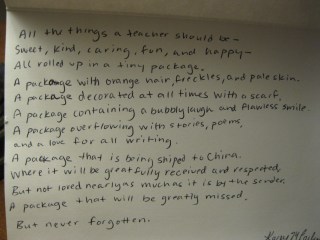 All the things a teacher should be-
Sweet, kind, caring, fun, and happy-
All rolled up in a tiny package.
A package with orange hair, freckles, and pale skin.
A package decorated at all times with a scarf.
A package containing a bubbly laugh and flawless smile.
A package overflowing with stories, poems,
and a love for all writing.
A package that is being shiped to China.
Where it will be greatfully received and respected,
But not loved nearly as much as it is by the sender.
A package that will be greatly missed.
But never forgotten.